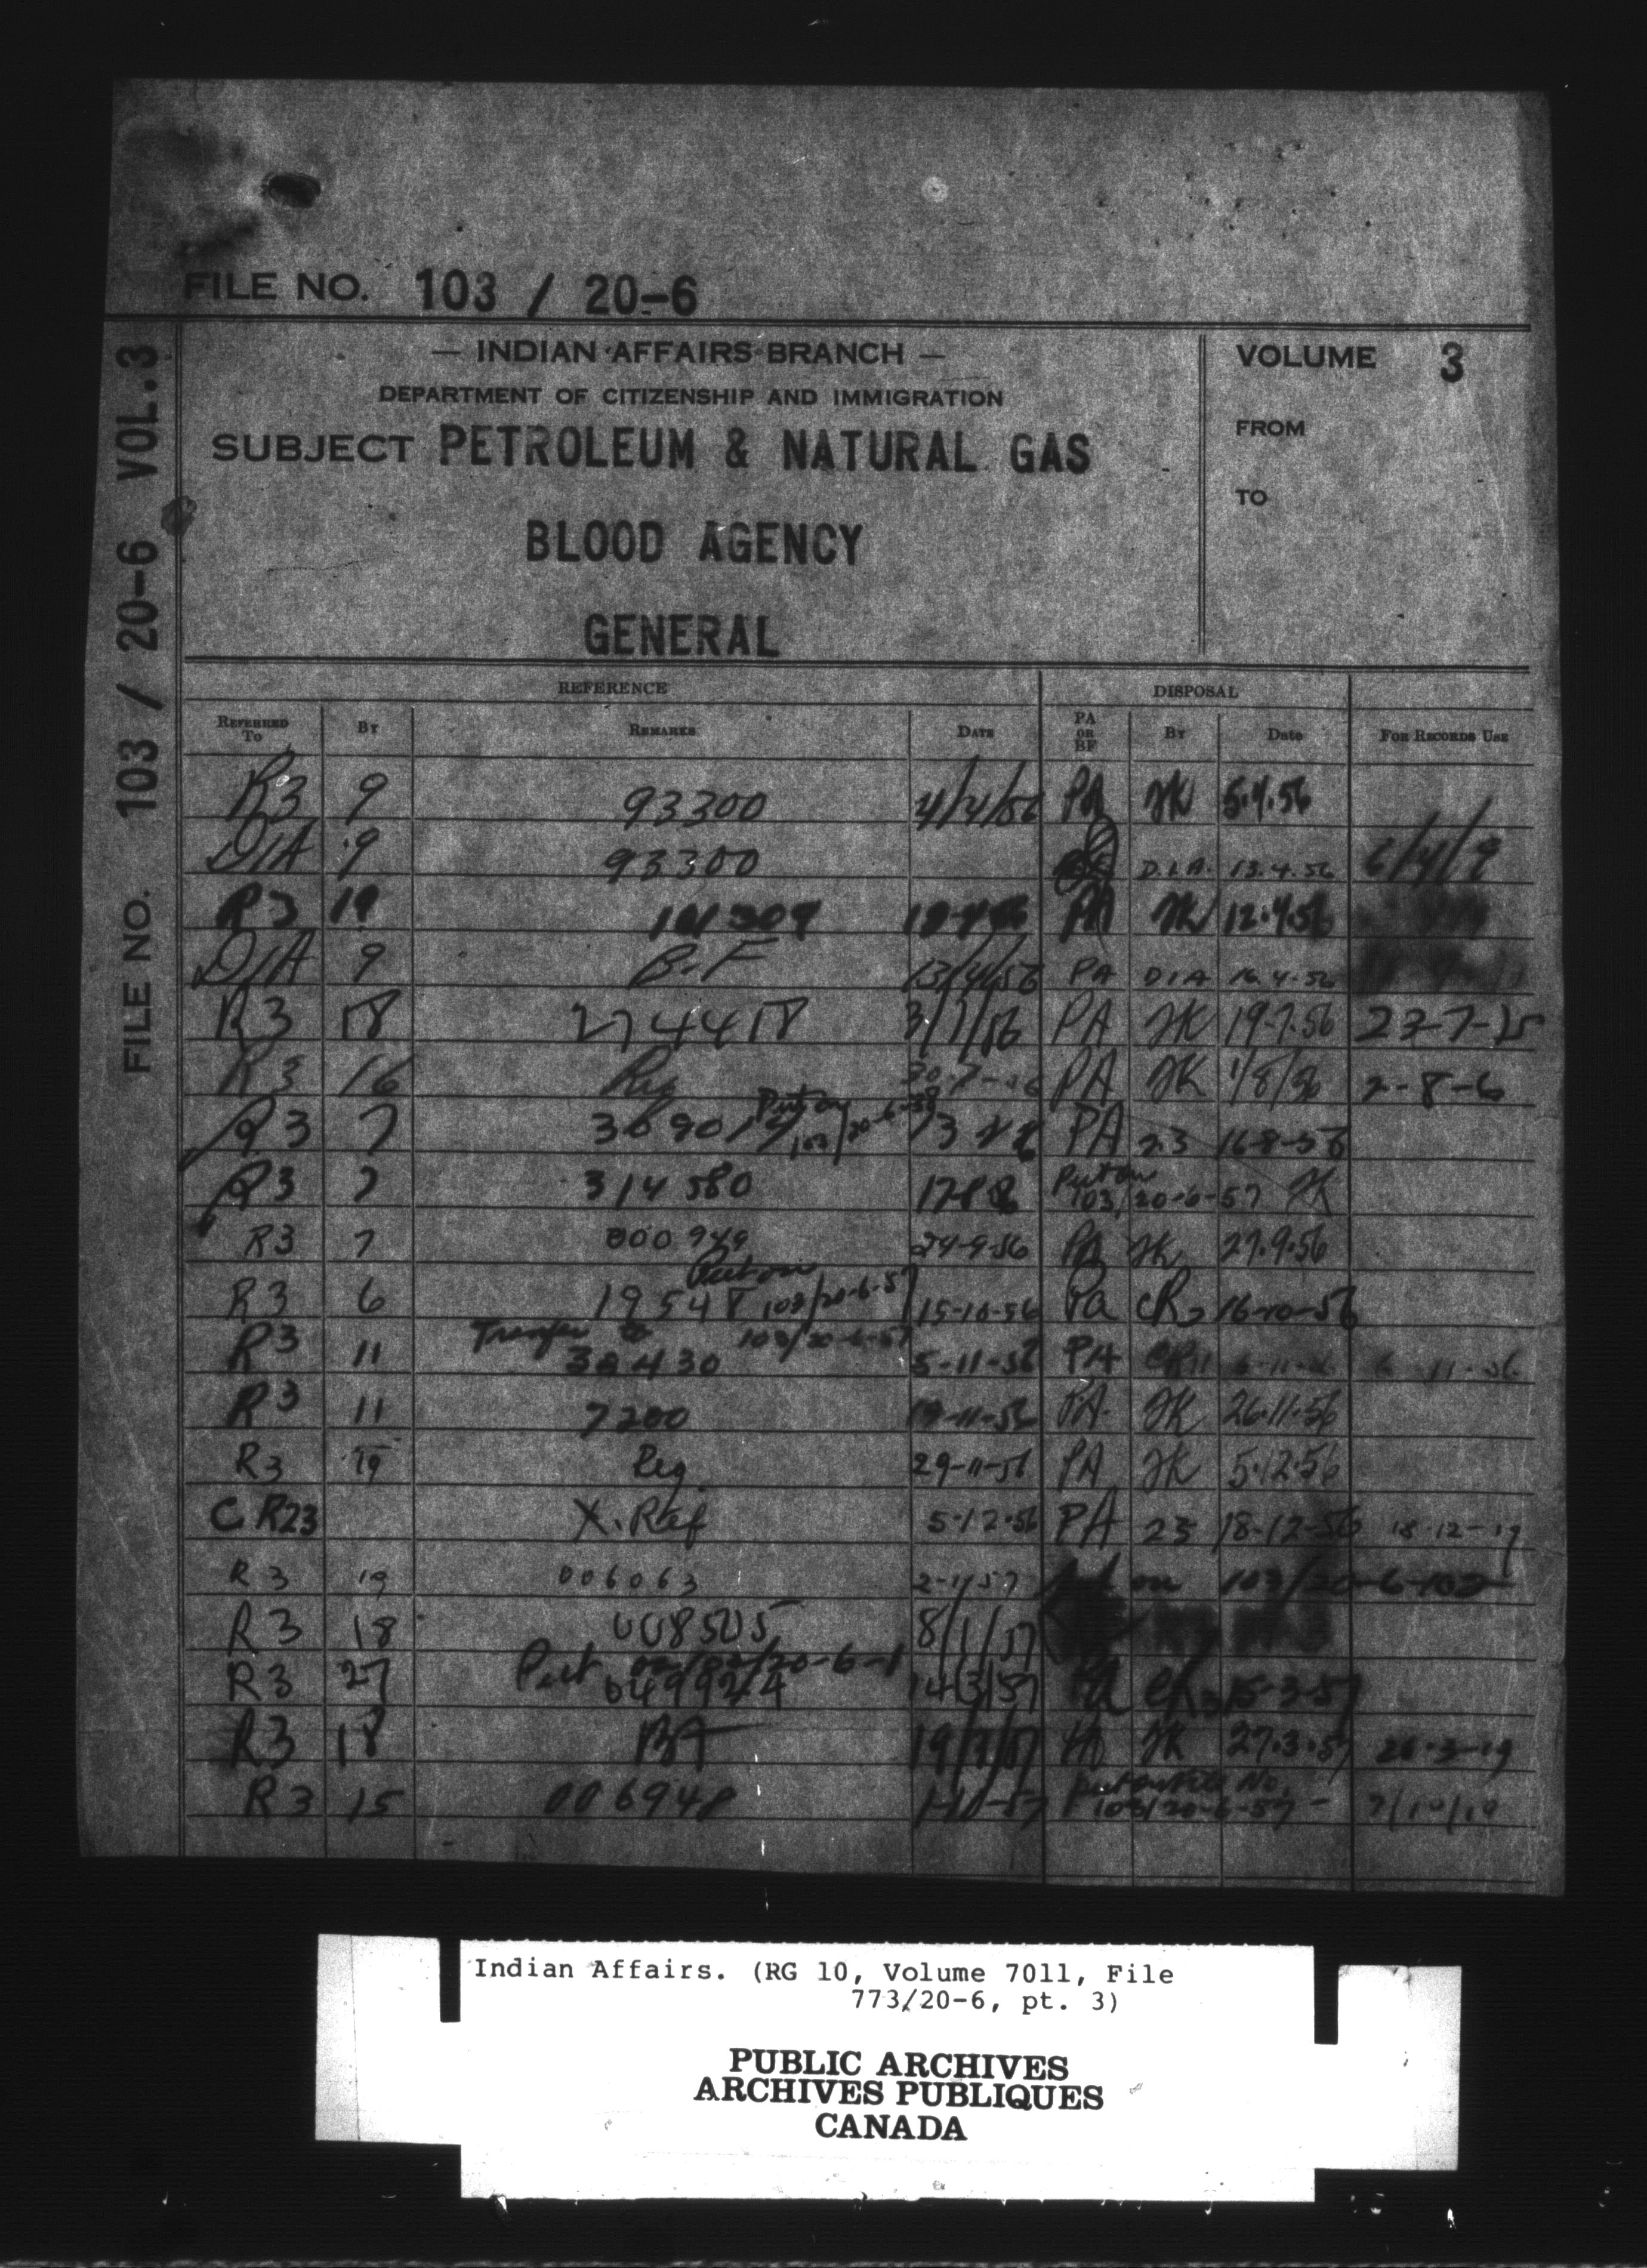 FILE NO. 103 / 20-6
— INDIAN AFFAIRS BRANCH —
DEPARTMENT OF CITIZENSHIP AND IMMIGRATION
SUBJECT PETROLEUM & NATURAL GAS
BLOOD AGENCY
GENERAL
VOLUME 3
FROM
TO
FILE NO. 103 / 20-6 VOL.3
REFERENCE DISPOSAL
REFERRED TO BY REMARKS DATE PA OR BF BY Date FOR RECORDS USE
R3 9 93300 4/4/56 PA JK 5.4.56
DIA 9 93300 D.I.A. 13.4.56 6/4/9
R3 19 PA JK 12.4.56
DIA 9 B.F 13/4/56 PA DIA 16.4.56
R3 18 274418 3/7/56 PA JK 19-7-56
R3 16 Reg PA JK 1/8/56 2-8-6
Put on 103/20-6-
R3 7 PA 23 16-8-56
R3 7 314580 Put on 103/20-6-57 JK
R3 7 000949 24-9-56 PA JK 27.9.56
Put on
R3 6 19548 103/20-6-57 15-10-56 PA 16-10-56
Transfer to 103/20-6-57
R3 11 30430 5-11-56 PA 6-11-56
R3 11 7200 19-11-56 PA JK 26.11.56
R3 19 Reg 29-11-56 PA JK 5.12.56
CR23 X. Ref 5.12.56 PA 23 18-12-56 18-12-19
R3 19 006063 2-1/57 Put on 103/20-6-102
R3 18 008505 8/1/57
Put on 103/20-6-1
R3 27 049924 14/3/57 PA 15-3-57
R3 18 19/3/57 PA JK 27.3.57
R3 15 006948 1-10-57 Put on File No. 103/20-6-57 - 7/10/19
Indian Affairs. (RG 10, Volume 7011, File
773/20-6, pt. 3)
PUBLIC ARCHIVES
ARCHIVES PUBLIQUES
CANADA